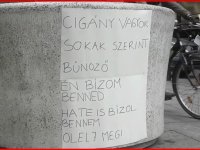 CIGÁNY VAGYOK
SOKAK SZERINT
BŰNÖZŐ
ÉN BÍZOM
BENNED
HA TE IS BÍZOL
BENNEM
ÖLELJ MEG!